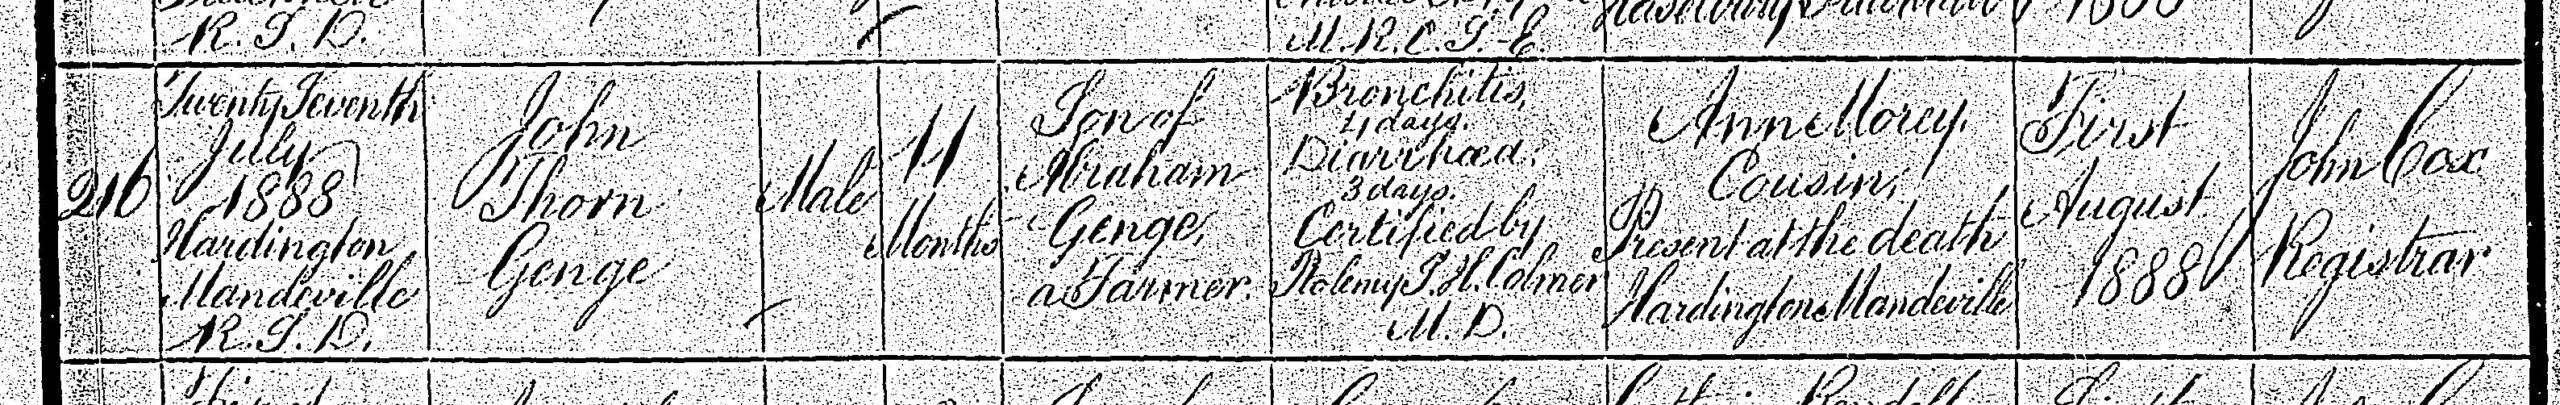 R.S.D.
M.R.C.S.-E.
216
Twenty Seventh
July
1888
Hardington
Mandeville
R.S.D.
John
Thorn
Genge
Male
11
Months
Son of
Abraham
Genge,
a Farmer.
Bronchitis,
4 days.
Diarrhœa.
3 days.
Certified by
Ptolemy S.H. Colmer
M.D.
Ann Morey.
Cousin,
Present at the death
Hardington Mandeville
First
August
1888
John Cox
Registrar